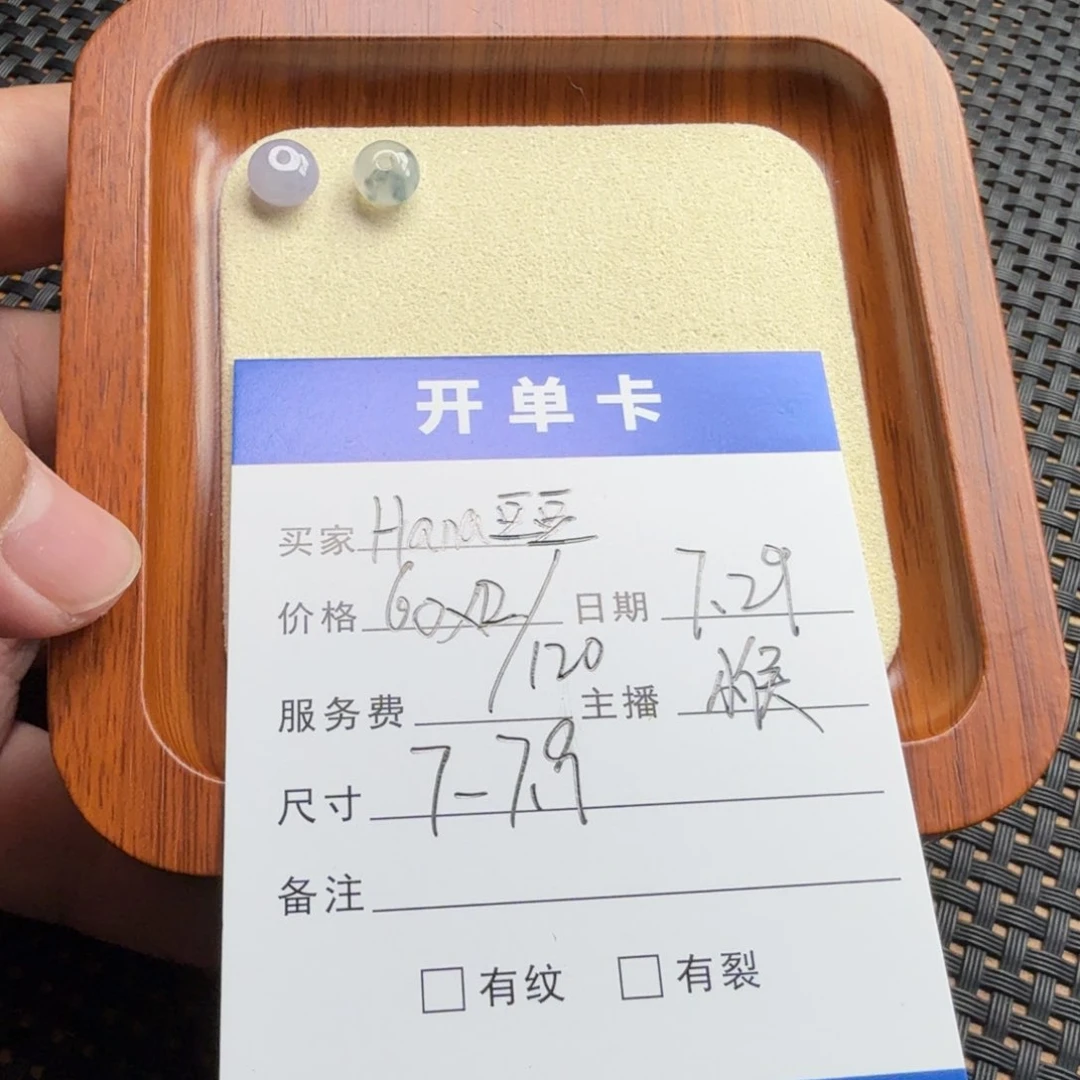 开单卡
买家 Hana豆豆
价格 60x2/120 日期 7.29
服务费 主播 猴
尺寸 7-7.9
备注
□有纹 □有裂